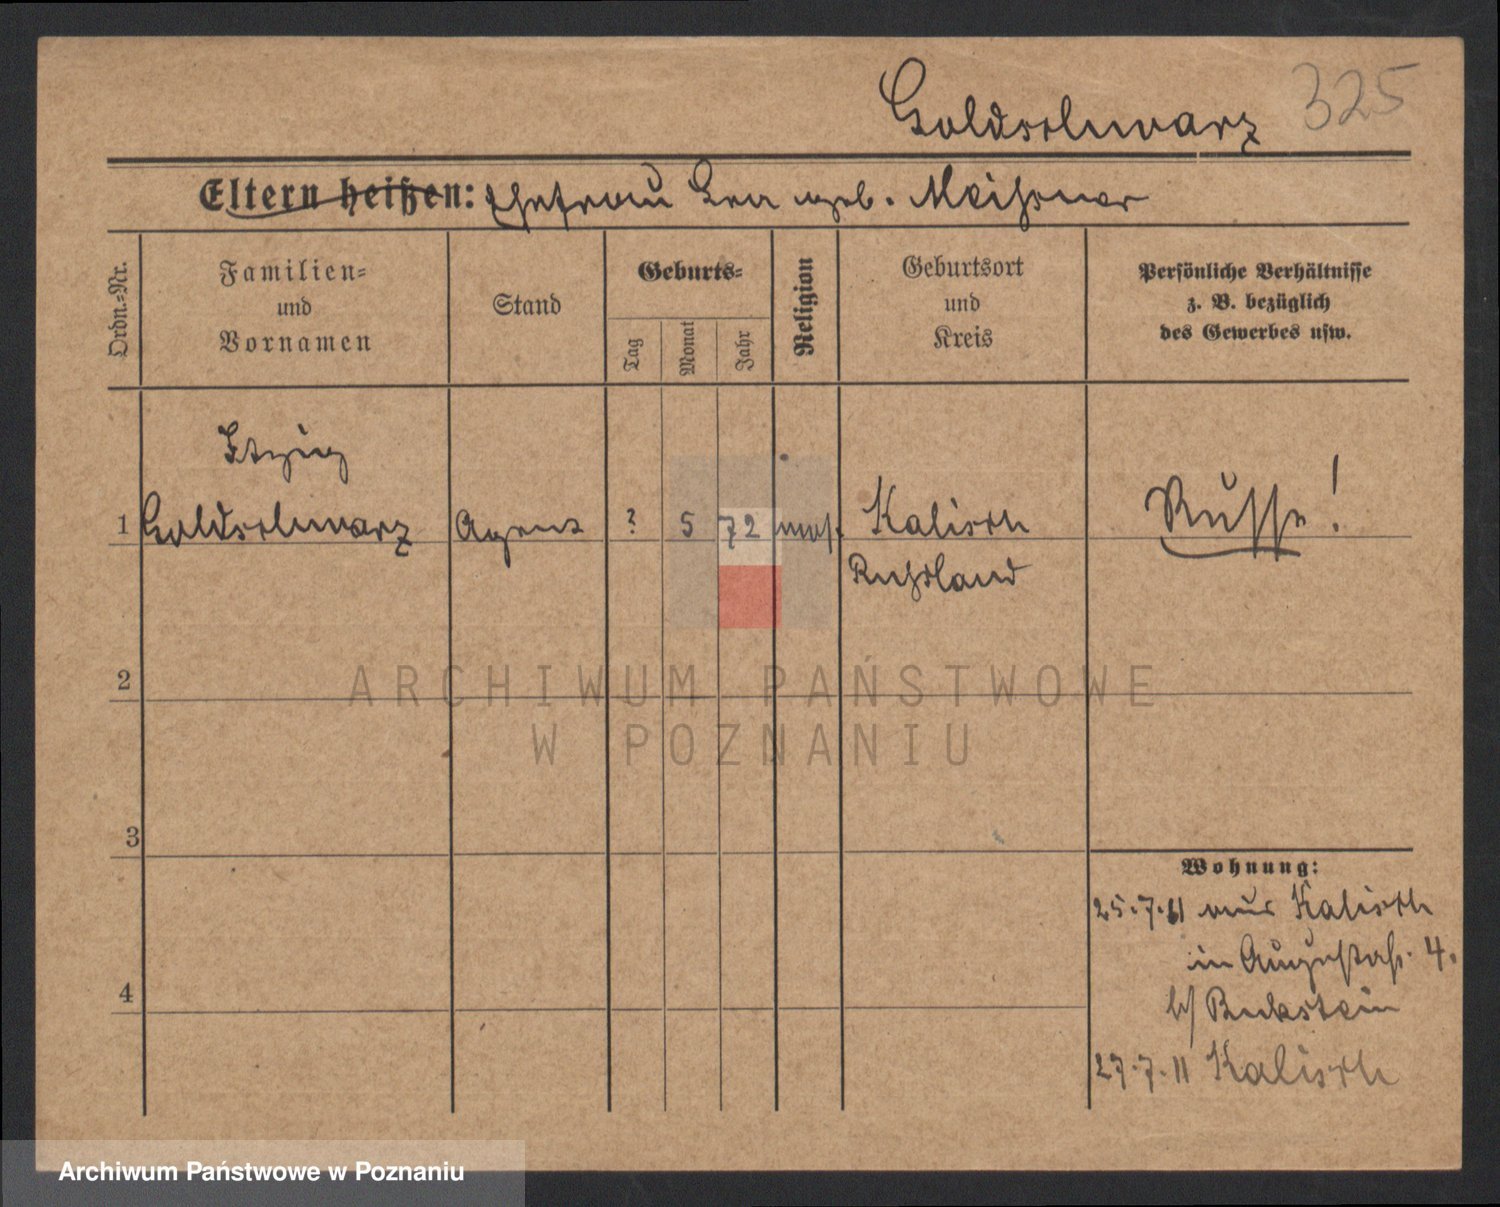 Goldschwarz 325
Eltern heißen: Ehefrau Lea geb. Meißner
Ordn.=Nr.
Familien=
und
Vornamen
Stand
Geburts=
Tag
Monat
Jahr
Religion
Geburtsort
und
Kreis
Persönliche Verhältnisse
z. B. bezüglich
des Gewerbes usw.
Itzig
1 Goldschwarz Agent ? 5 72 mos. Kalisch Russe!
Russland
2
ARCHIWUM PAŃSTWOWE
W POZNANIU
3
Wohnung:
25.7.11 aus Kalisch
in Augustastr. 4.
b/ Buckstein
4
27.7.11 Kalisch
Archiwum Państwowe w Poznaniu